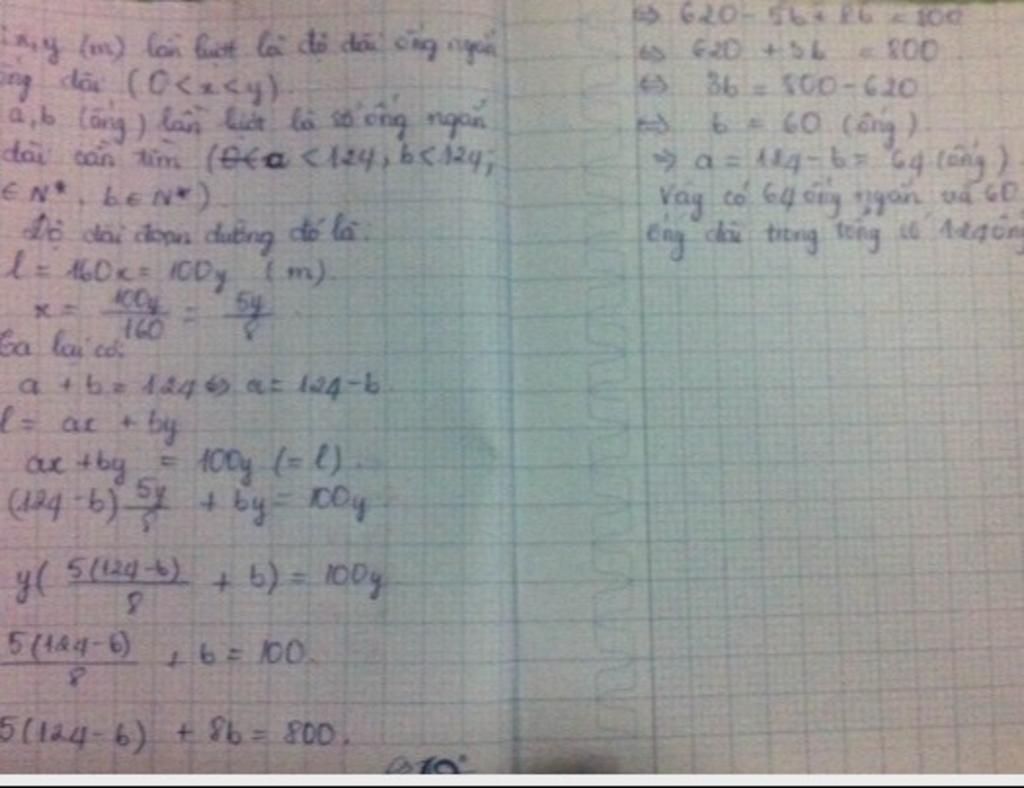 x, y (m) lần lượt là độ dài ống ngắn
ống dài (0 < x < y).
a, b (ống) lần lượt là số ống ngắn
dài cần tìm (a < 124, b < 124;
∈ N*, b ∈ N*)
Độ dài đoạn đường đó là:
l = 160x = 100y (m).
x = 100y/160 = 5y/8
Ta lại có:
a + b = 124 ⇔ a = 124 - b
l = ax + by
ax + by = 100y (= l).
(124 - b) 5y/8 + by = 100y
y( 5(124 - b)/8 + b) = 100y
5(124 - b)/8 + b = 100.
5(124 - b) + 8b = 800.
⇔ 620 - 5b + 8b = 800
⇔ 620 + 3b = 800
⇔ 3b = 800 - 620
⇔ b = 60 (ống).
⇒ a = 124 - b = 64 (ống)
Vậy có 64 ống ngắn và 60
ống dài trong tổng số 124 ống